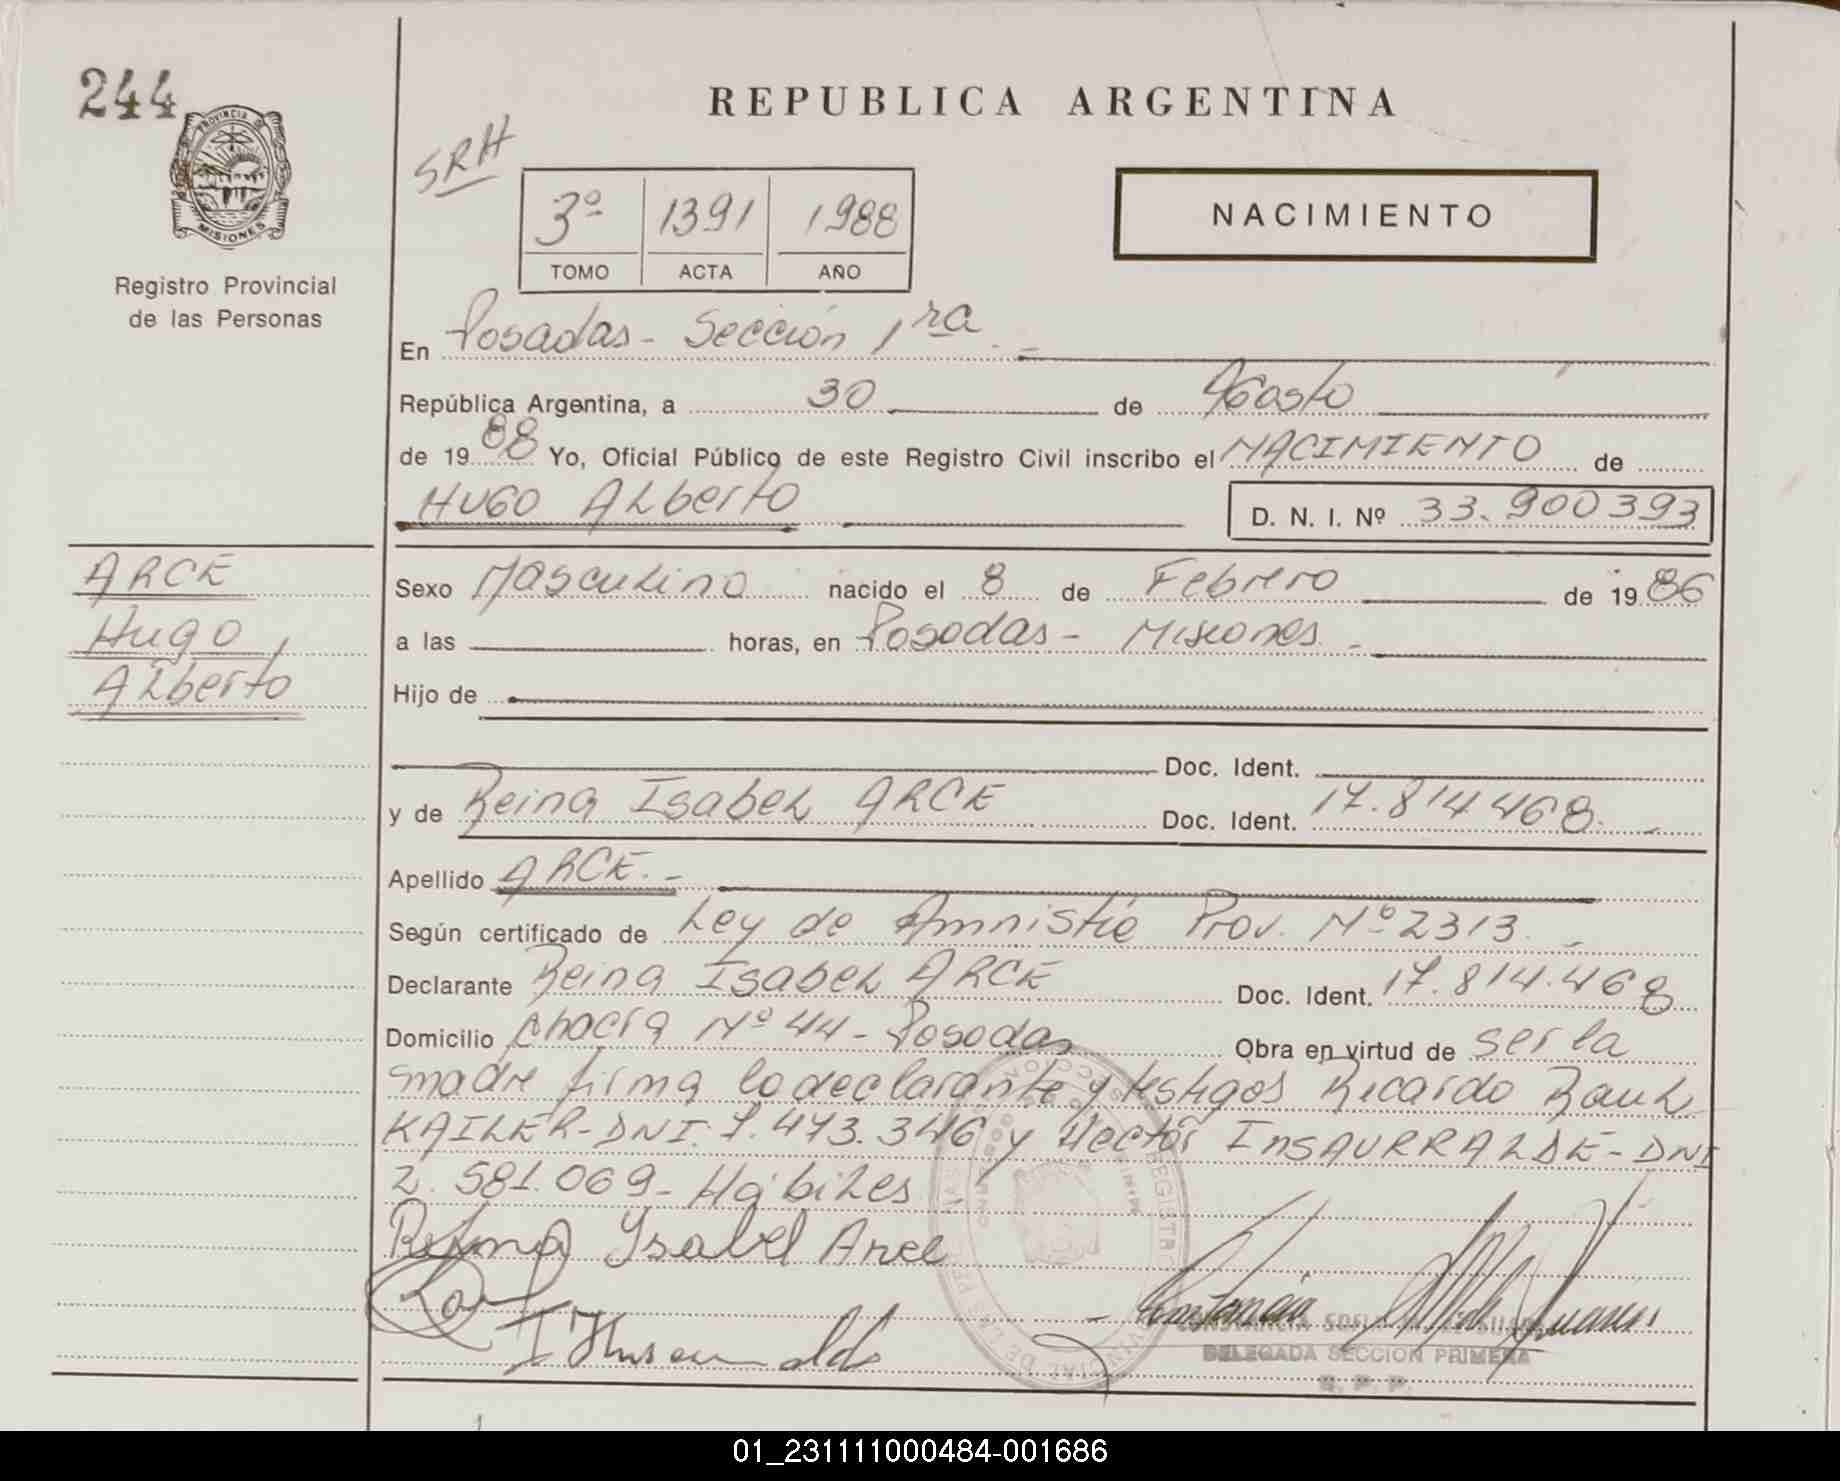 244
PROVINCIA DE
MISIONES
Registro Provincial
de las Personas
REPUBLICA ARGENTINA
SRH
3º 1391 1988
TOMO ACTA AÑO
NACIMIENTO
En Posadas - Sección 1ra. -
República Argentina, a 30 de Agosto
de 1988 Yo, Oficial Público de este Registro Civil inscribo el NACIMIENTO de
HUGO ALberto D. N. I. Nº 33.900393
ARCE
Hugo
ALberto
Sexo Masculino nacido el 8 de Febrero de 1986
a las horas, en Posadas - Misiones. -
Hijo de
Doc. Ident.
y de Reina Isabel ARCE Doc. Ident. 17.814468. -
Apellido ARCE. -
Según certificado de Ley de Amnistía Prov. Nº 2313. -
Declarante Reina Isabel ARCE Doc. Ident. 17.814.468
Domicilio chacra Nº 44 - Posadas Obra en virtud de ser la
madre firma la declarante y testigos Ricardo Raul
KAILER - DNI. 7.473.346 y Hector INSAURRALDE - DNI
2.581.069 - Hábiles
Reina Ysabel Arce
DELEGADA SECCION PRIMERA
R. P. P.
01_231111000484-001686